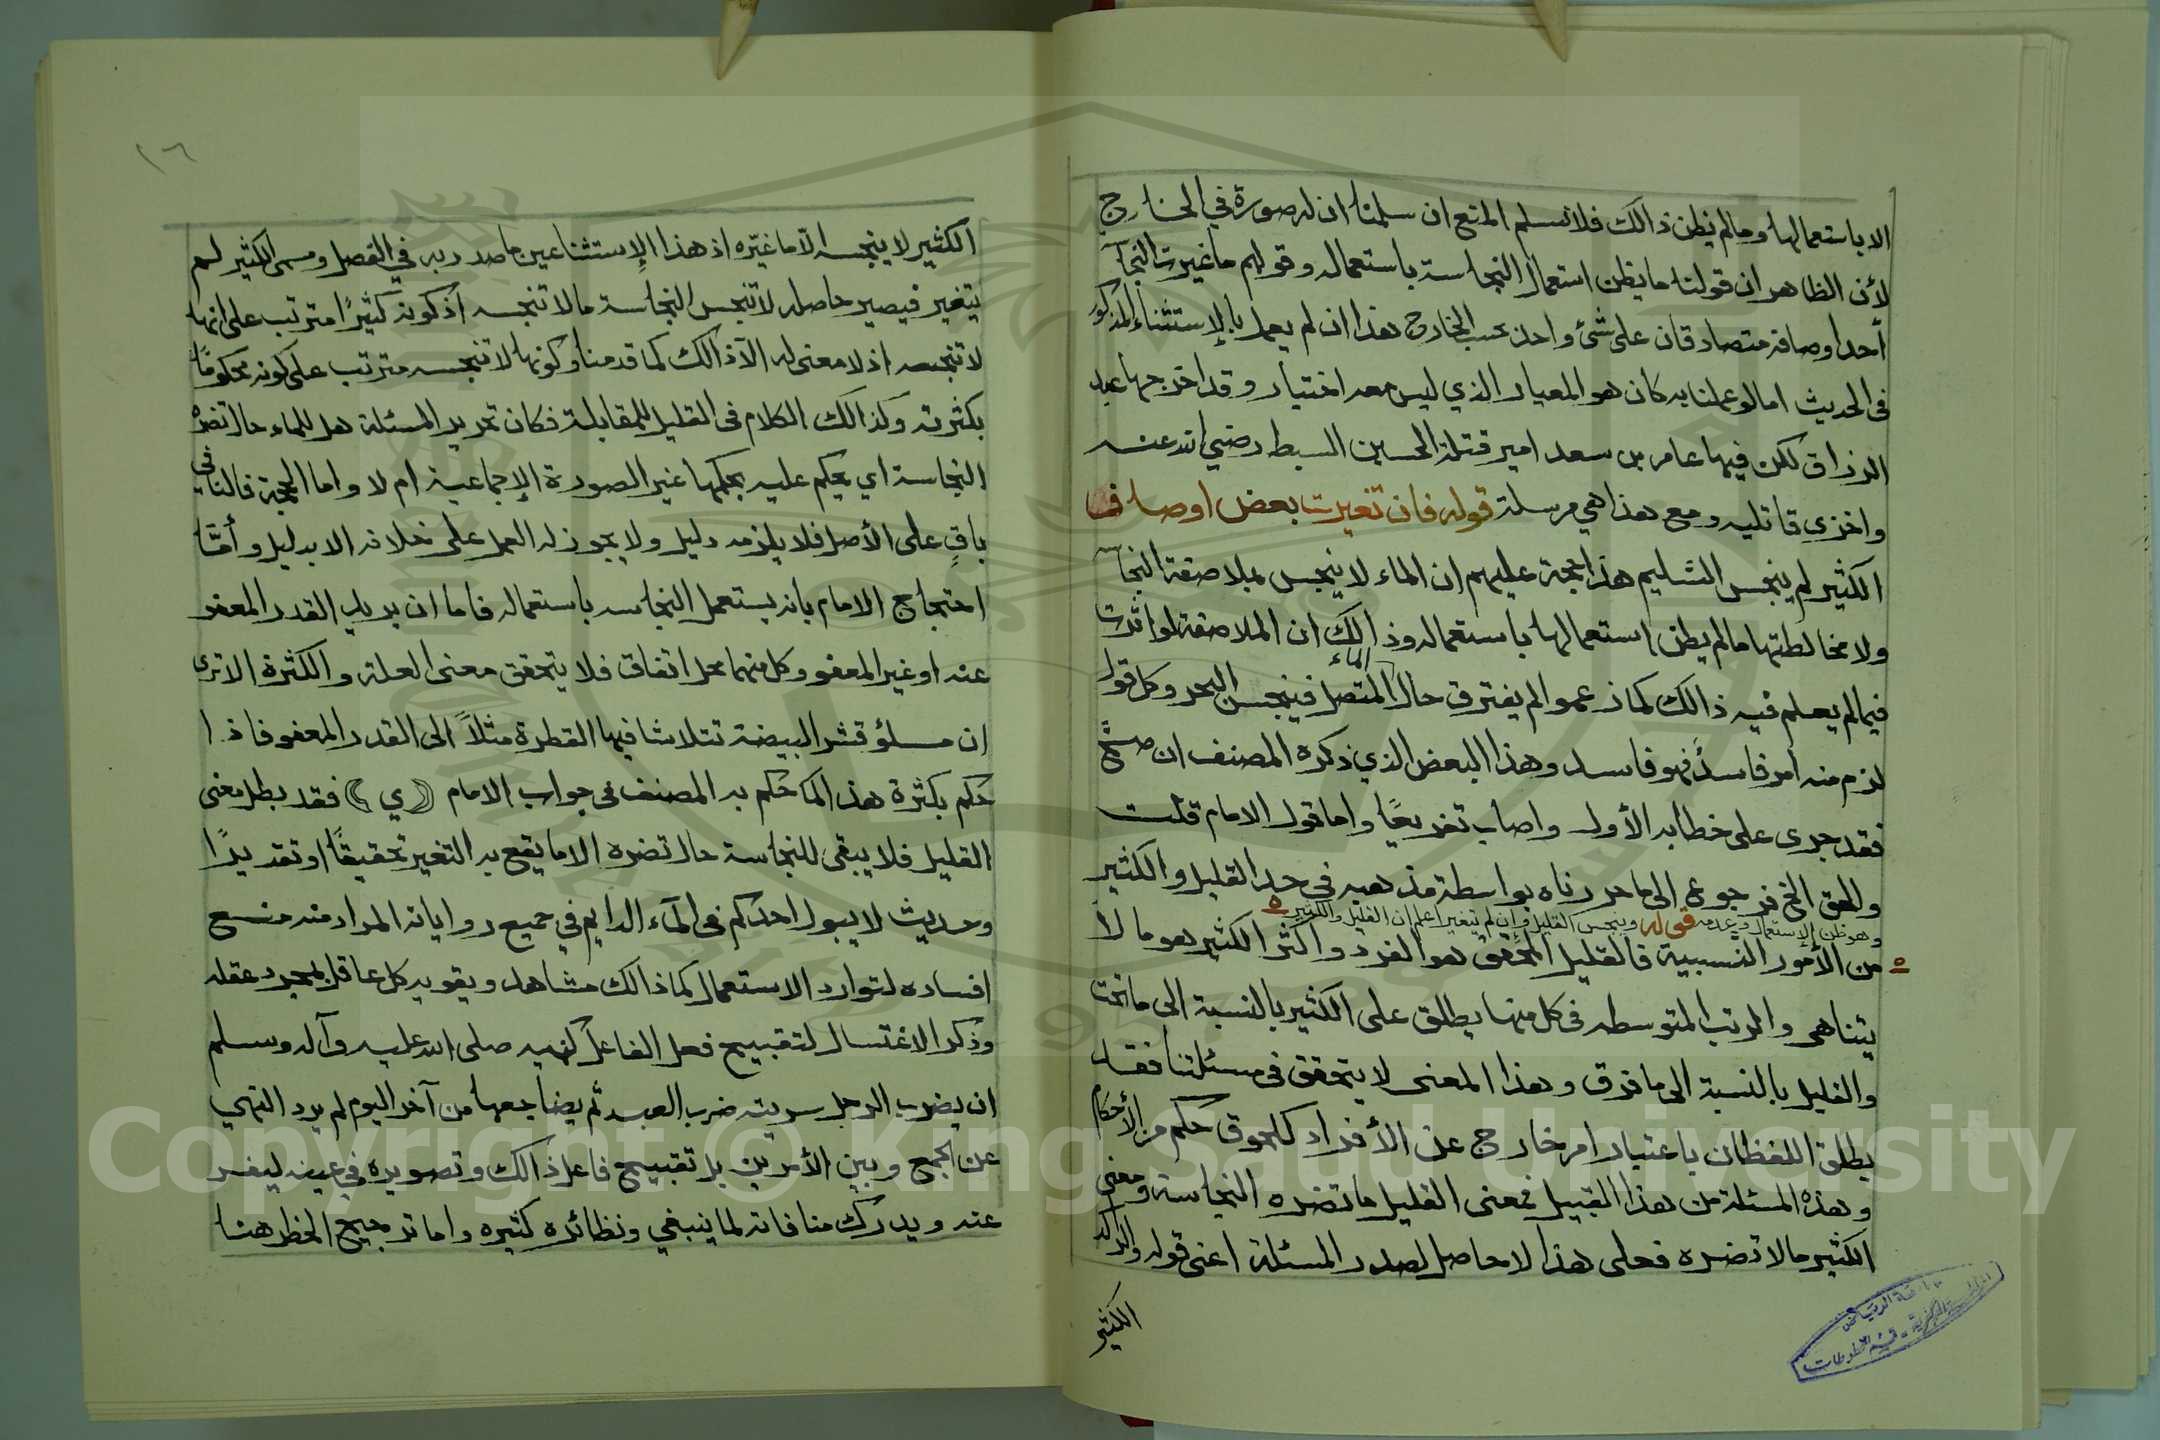 الا باستعمالها وما لم يظن ذالك فلا نسلم المنع ان سلمنا ان له صورة في الخارج
لأن الظاهر ان قولنا ما يظن استعمال النجاسة باستعماله وقولهم ما غيرت النجاسة
أحد اوصافه متصادقان على شئ واحد بحسب الخارج هذا ان لم يعمل بالإستثناء المذكور
في الحديث اما لو عملنا به كان هو المعيار الذي ليس معه اختيار وقد اخرجها عبد
الرزاق لكن فيها عامر بن سعد امير قتلة الحسين السبط رضي الله عنه
واخزى قاتليه ومع هذا هي مرسلة قوله فان تغيرت بعض اوصاف
الكثير لم ينجس السليم هذا حجة عليهم ان الماء لا ينجس بملاصقة النجاسة
ولا مخالطتها ما لم يظن استعمالها باستعماله وذالك ان الملاصقة لو اثرت
فيما لم يعلم فيه ذالك كما زعموا لم يفترق حال الماء المتصل فينجس البحر وكل قول
لزم منه امر فاسد فهو فاسد وهذا البعض الذي ذكره المصنف ان صح
فقد جرى على خطابه الأول واصاب تفريعًا واما قول الامام قلت
والحق الخ فرجوع الى ما حررناه بواسطة مذهبه في حد القليل والكثير
وهو ظن الإستعمال وعدمه قوله وينجس القليل وإن لم يتغير اعلم ان القليل والكثير
من الأمور النسبية فالقليل المحقق هو الفرد واكثر الكثير هو ما لا
يتناهى والمرتب المتوسطه في كل منها يطلق على الكثير بالنسبة الى ما تحت
والقليل بالنسبة الى ما فوق وهذا المعنى لا يتحقق في مسئلتنا فقد
يطلق اللفظان باعتبار امر خارج عن الأفراد كلحوق حكم من الأحكام
وهذه المسئلة من هذا القبيل فمعنى القليل ما تضره النجاسة ومعنى
الكثير ما لا تضره فعلى هذا لا حاصل لصدر المسئلة اعني قوله والراكد
الكثير
١٦
الكثير لا ينجسه الّا ما غيّره اذ هذا الإستثنا عين ما صدر به في الفصل ومسمى الكثير لم
يتغير فيصير حاصله لا تنجس النجاسة ما لا تنجسه اذ كونه كثيرًا مترتب على انها
لا تنجسه اذ لا معنى له الّا ذالك كما قدمنا وكونها لا تنجسه مترتب على كونه محكومًا
بكثرته وكذالك الكلام في القليل للمقابلة فكان تحرير المسئلة هل للماء حال تضره
النجاسة اي يحكم عليه بحكمها غير الصورة الإجماعية ام لا واما الحجة فالنافي
باقٍ على الأصل فلا يلزمه دليل ولا يجوز له العمل على خلافه الا بدليل وأمّا
احتجاج الامام بانه يستعمل النجاسه باستعماله فاما ان يريد القدر المعفو
عنه او غير المعفو وكل منهما محل اتفاق فلا يتحقق معنى العلة والكثرة الا ترى
ان ملؤ قشر البيضة تتلاشا فيها القطرة مثلاً الى القدر المعفو فاذا
حكم بكثرة هذا لما حكم به المصنف في جواب الامام (ي) فقد بطل معنى
القليل فلا يبقى للنجاسة حال تضره الا ما يقع به التغير تحقيقًا او تقديرًا
وحديث لا يبول احدكم في المآء الدايم في جميع رواياته المراد منه منع
افساده لتوارد الاستعمال كما ذالك مشاهد ويقويه كل عاقل بمجرد عقله
وذكر الاغتسال لتقبيح فعل الفاعل كنهيه صلى الله عليه وآله وسلم
ان يضرب الرجل سريته ضرب العبد ثم يضاجعها من آخر اليوم لم يرد النهي
عن الجمع وبين الأمرين بل تقبيح فاعل ذالك وتصويره في عينه ليفر
عنه ويدرك منافاته لما ينبغي ونظائره كثيره واما ترجيح الحظر هنا
Copyright © King Saud University